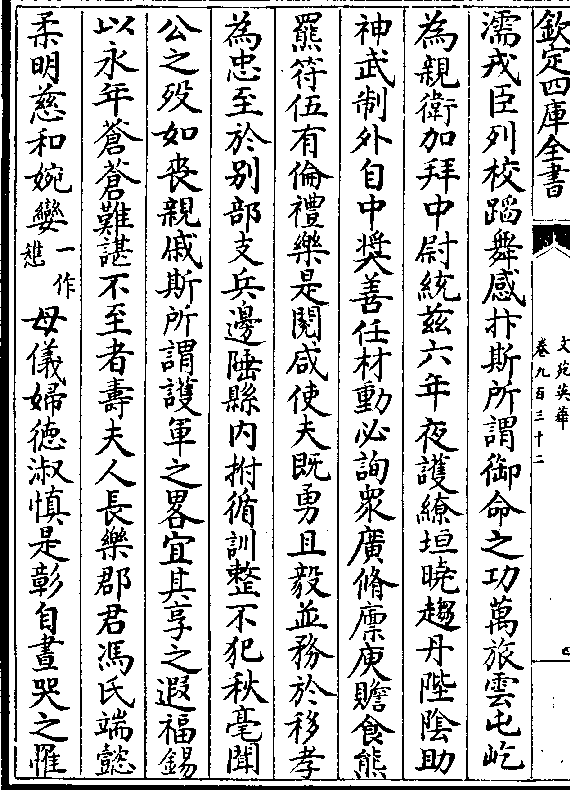 欽定四庫全書
文苑英華
卷九百三十二
四
濡戎臣列校蹈舞感抃斯所謂御命之功萬旅雲屯屹
為親衛加拜中尉統茲六年夜護繚垣曉趨丹陛陰助
神武制外自中奬善任材動必詢衆廣脩廩庾贍食熊
羆符伍有倫禮樂是閱咸使夫既勇且毅並務於移孝
為忠至於別部支兵邊陲縣内拊循訓整不犯秋毫聞
公之歿如喪親戚斯所謂護軍之畧宜其享之遐福錫
以永年蒼蒼難諶不至者壽夫人長樂郡君馮氏端懿
柔明慈和婉孌一作母儀婦徳淑慎是彰自晝哭之罹